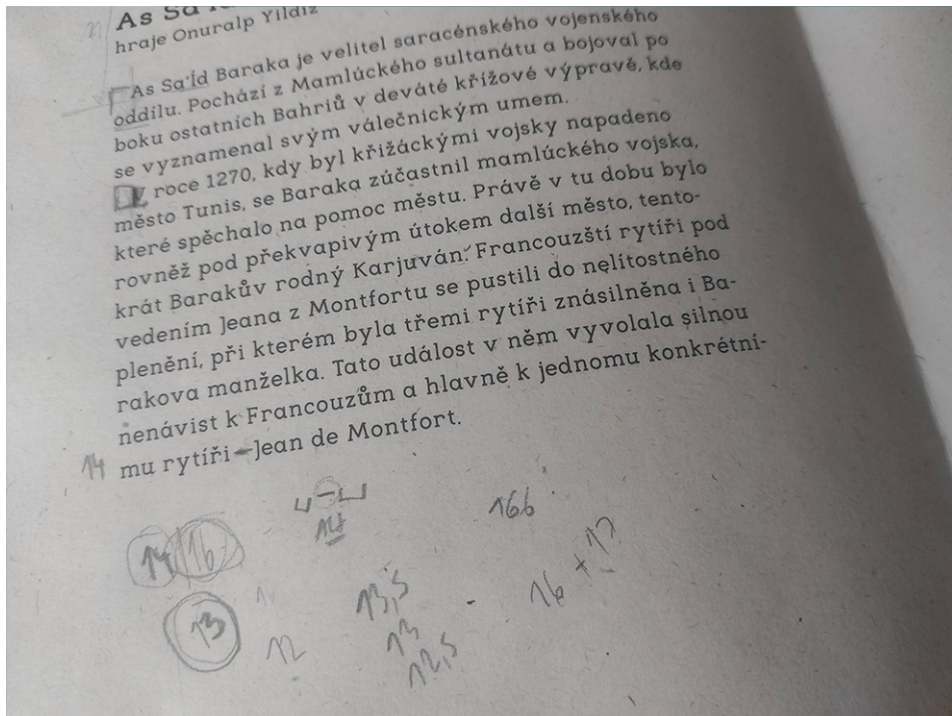 21
As Sa
hraje Onuralp Yildiz
As Sa'Íd Baraka je velitel saracénského vojenského
oddílu. Pochází z Mamlúckého sultanátu a bojoval po
boku ostatních Bahriů v deváté křížové výpravě, kde
se vyznamenal svým válečnickým umem.
V roce 1270, kdy byl křižáckými vojsky napadeno
město Tunis, se Baraka zúčastnil mamlúckého vojska,
které spěchalo na pomoc městu. Právě v tu dobu bylo
rovněž pod překvapivým útokem další město, tento-
krát Barakův rodný Karjuván. Francouzští rytíři pod
vedením Jeana z Montfortu se pustili do nelítostného
plenění, při kterém byla třemi rytíři znásilněna i Ba-
rakova manželka. Tato událost v něm vyvolala silnou
nenávist k Francouzům a hlavně k jednomu konkrétní-
14 mu rytíři – Jean de Montfort.
166
14
14 16
16 + 17
13,5
13
13
12
12,5